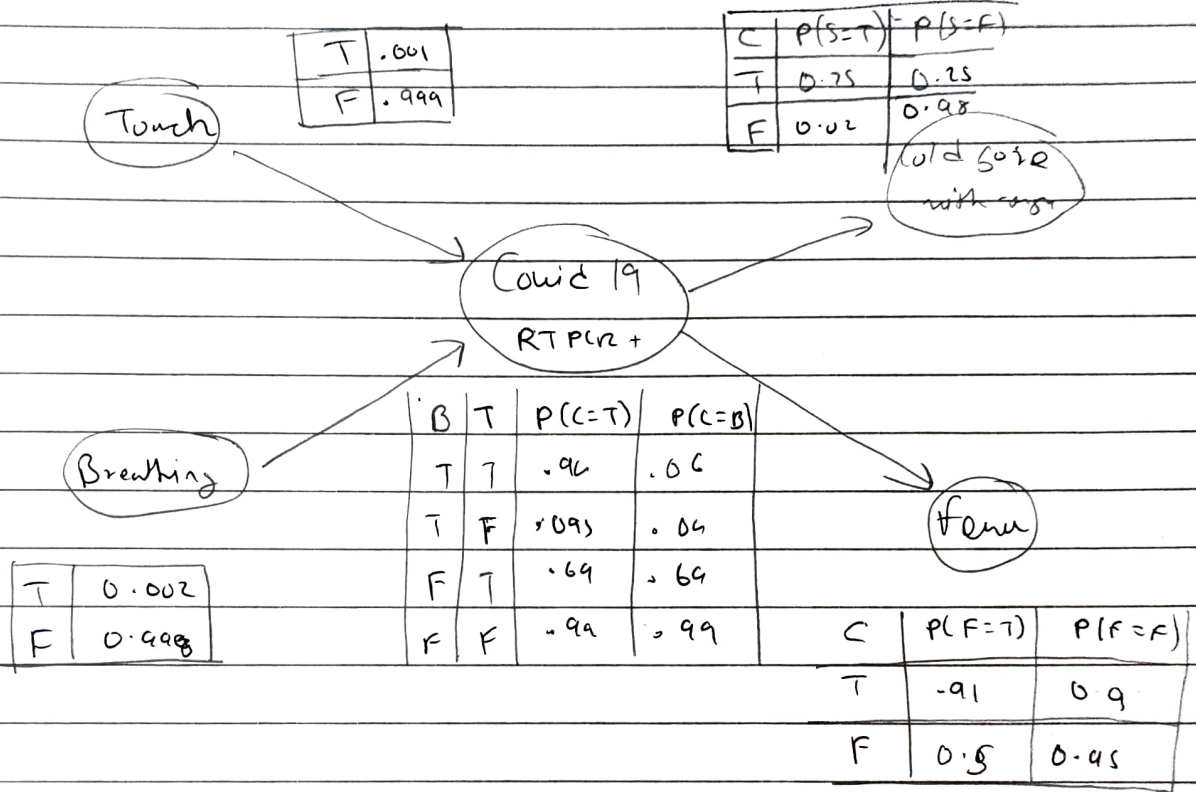 T .001
F .999
C P(S=T) P(S=F)
T 0.75 0.25
F 0.02 0.98
Touch
Cold sore
with
Covid 19
RTPCR +
Breathing
T 0.002
F 0.998
B T P(C=T) P(C=B)
T T .94 .06
T F .095 .04
F T .69 .69
F F .99 .99
Fever
C P(F=T) P(F=F)
T .91 0.9
F 0.5 0.95